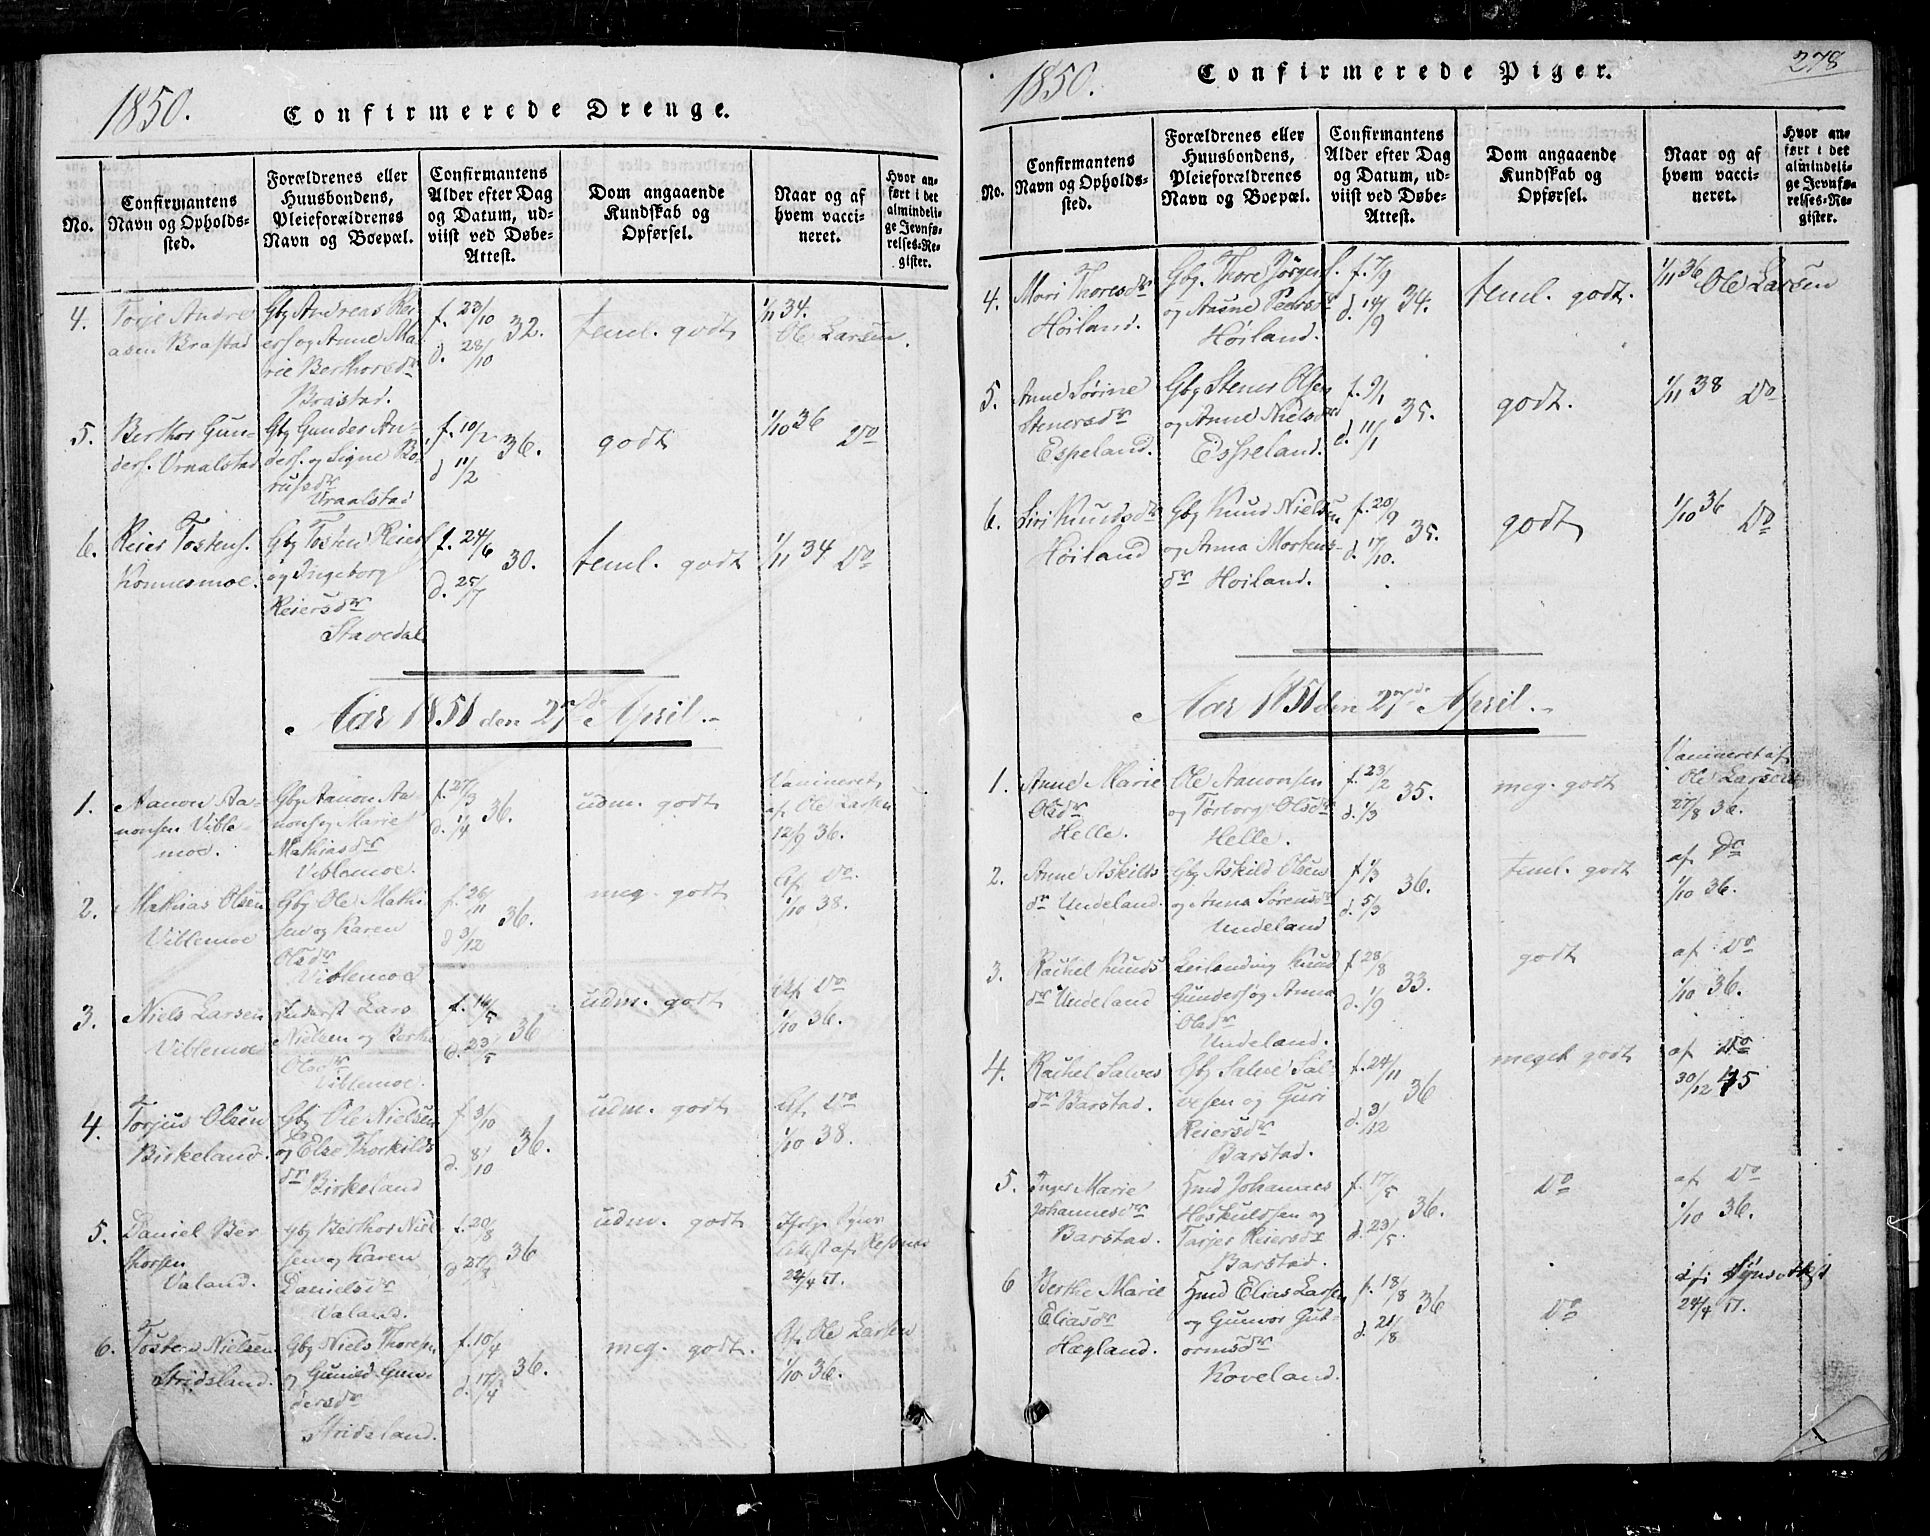 1850.
Confirmerede Drenge.
No.
Confirmantens
Navn og Opholds-
sted.
Forældrenes eller
Huusbondens,
Pleieforældrenes
Navn og Boepæl.
Confirmantens
Alder efter Dag
og Datum, ud-
viist ved Døbe-
Attest.
Dom angaaende
Kundskab og
Opførsel.
Naar og af
hvem vacci-
neret.
Hvor an-
ført i det
almindeli-
ge Jevnfø-
relses-Re-
gister.
4.
Torje Andre
asen Brastad
Gbg Andreas Rei
ers og Anne Ma
rie Berthorsdr
Brastad.
f. 23/10
d. 28/10
32.
teml. godt
1/11 34.
Ole Larsen.
5.
Berthor Gun
ders. Vraalstad
Gbg Gunder An-
ders. og Signe Bo-
rusdr
Vraalstad
f. 10/2
d 11/2
36.
godt
1/10 36
Do
6.
Reier Tostens.
Konnesmoe.
Gbg Tosten Reiers
og Ingeborg
Reiersdr
Stavedal
f. 24/6
d. 25/7
30.
teml. godt
1/11 34 Do
Aar 1851 den 27de April.
1.
Aanon Aa-
nonsen Vible-
moe.
Gbg Aanon Aa-
nons og Marie
Mathiasdr
Viblemoe.
f. 27/3
d. 1/4
36.
udm. godt
Vaccineret
af Ole Larsen
12/9 36.
2.
Mathias Olsen
Viblemoe
Gbg Ole Mathi
sen og Karen
Olsdr
Viblemoe
f. 26/11
d 3/12
36.
meg. godt
Af Do.
1/10 38.
3.
Niels Larsen
Viblemoe
Inderst Lars
Nielsen og Berthe
Olsdr
Viblemoe.
f. 14/5
d. 23/5
36
udm. godt
Af Do
1/10 36.
4.
Torjus Olsen
Birkeland.
Gbg Ole Nielsen
og Else Thorkilds
dr Birkeland
f. 3/10
d. 8/10
36.
udm. godt
Af Do
1/10 38.
5.
Daniel Ber
thorsen
Valand.
Gbg Berthor Niel
sen og Karen
Danielsdr
Valand.
f. 20/8
d 27/8
36
udm. godt
Ifølge Syns
Attest af
24/4 51.
6.
Tosten Nielsen
Stridsland.
Gbg Niels Thores
og Gunild Gun-
dersdr
Stridsland.
f. 10/4
d. 17/4
36.
meg. godt.
Af Ole Larsen
1/10 36.
1850.
Confirmerede Piger.
278
No.
Confirmantens
Navn og Opholds-
sted.
Forældrenes eller
Huusbondens,
Pleieforældrenes
Navn og Boepæl.
Confirmantens
Alder efter Dag
og Datum, ud-
viist ved Døbe-
Attest.
Dom angaaende
Kundskab og
Opførsel.
Naar og af
hvem vacci-
neret.
Hvor an-
ført i det
almindeli-
ge Jevnfø-
relses-Re-
gister.
4.
Mari Thoresdr
Høiland.
Gbg. Thore Jørgens.
og Aasne Pedersdr
Høiland.
f. 7/9
d. 14/9
34.
teml. godt.
1/11 36 Ole Larsen
5.
Anne Sørine
Stenersdr
Espeland.
Gbg Stener Olsen
og Anne Nielsdr
Espeland.
f. 9/1
d. 11/1
35.
godt.
1/11 38 Do
6.
Siri Knudsdr
Høiland
Gbg Knud Nielsen
og Anna Mortens-
dr Høiland.
f. 20/9
d. 17/10.
35.
godt
1/10 36 Do
Aar 1851 den 27de April.
1.
Anne Marie
Olsdr
Helle.
Ole Aanonsen
og Tørborg Olsdr
Helle.
f. 23/2
d. 1/3
35.
meg. godt
Vaccineret af
Ole Larsen
27/8 36.
2.
Anne Askilds
dr Undeland.
Gbg Askild Olsen
og Anna Sørensdr
Undeland
f. 1/3
d. 5/3
36.
teml. godt
af Do
1/10 36.
3.
Rachel Knuds
dr Undeland
Leilænding Knud
Gunders. og Anna
Olsdr
Undeland.
f 28/8
d. 1/9
33.
godt
af Do
1/10 36.
4.
Rachel Salves
dr Barstad.
Gbg Salve Sal-
vesen og Guri
Reiersdr
Barstad.
f. 24/11
d. 3/12
36
meget godt
af Do
30/12 45
5.
Inger Marie
Johannesdr
Barstad.
Hmd Johannes
Hoskuldsen og
Tarjer Reiersdr
Barstad.
f. 17/5
d. 23/5.
36.
Do
af Do
1/10 36.
6
Berthe Marie
Eliasdr
Hægland.
Hmd Elias Larsen
og Gunvor Gut-
ormsdr
Koveland.
f. 18/8
d. 21/8
36
Do
24/4 51.